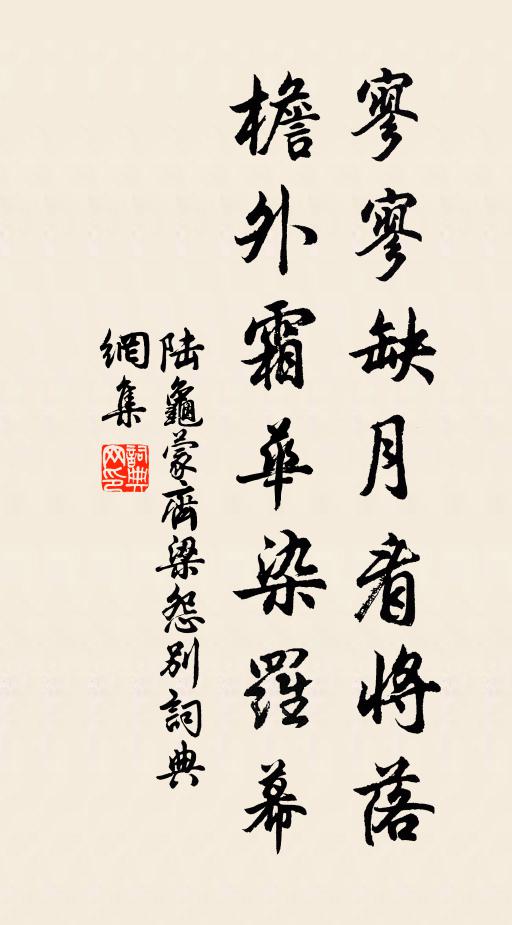 寥寥缺月看將落
檐外霜華染羅幕
陸龜蒙齊梁怨別詞典
網集
詞典網印